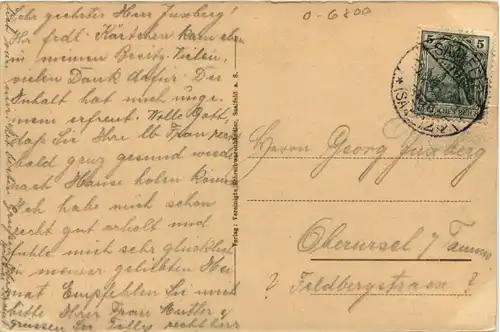 Sehr geehrter Herr Juxberg!
Ihr frdl. Kärtchen kam eben
in meinen Besitz. Vielen,
vielen Dank dafür. Der
Inhalt hat mich unge-
mein erfreut. Wolle Gott
daß Sie Ihre lb. Frau
bald ganz gesund wied
nach Hause holen können
Ich habe mich schon
recht gut erholt und
fühle mich sehr glücklich
in meiner geliebten Hei
mat. Empfehlen Sie mich
bitte Ihrer Frau Mutter &
grüssen Sie recht herz
Verlag: Vereinigte Schreibwarenhändler, Saalfeld a. S.
0-6800
5
SAALFELD
(SAALE)
Herrn Georg Juxberg
Oberursel / Taunus
? Feldbergstrasse ?